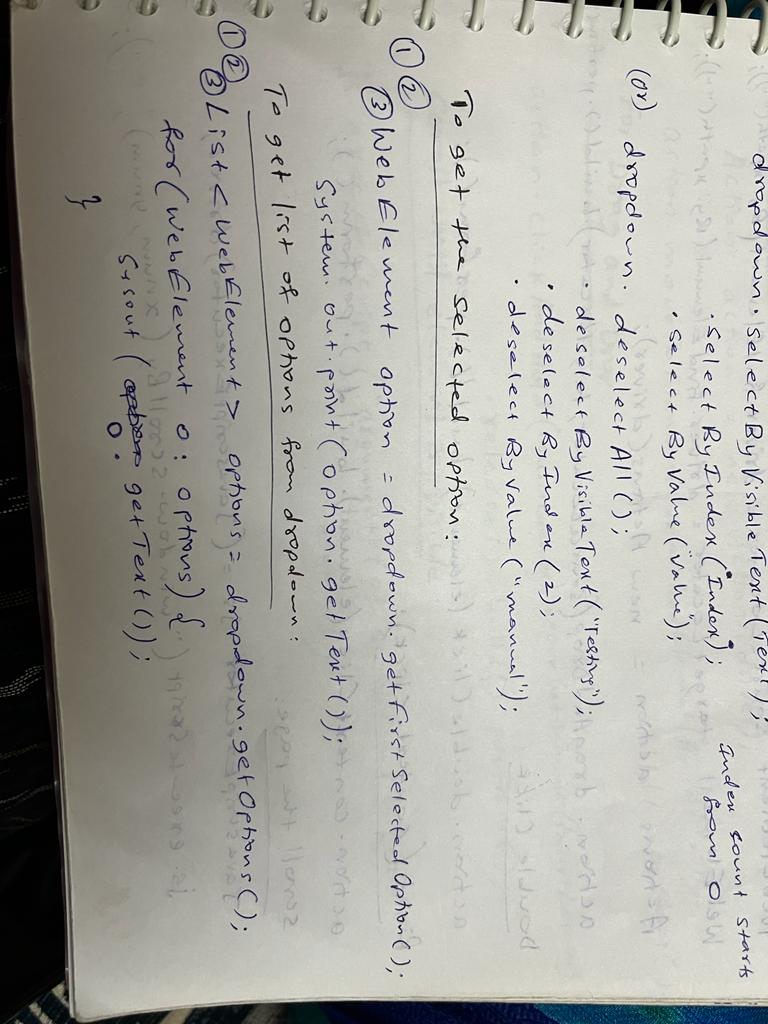 dropdown. select By Visible Text (Text);
. select By Index ("Index"); Index count starts from 0
. select By Value ("value");
(or) dropdown. deselect All ();
. deselect By Visible Text ("Testing");
. deselect By Index (2);
. deselect By Value ("manual");
To get the selected option:
① ②
③ WebElement option = dropdown. getFirstSelectedOption();
System. out. print (option. getText());
To get list of options from dropdown:
① ②
③ List < WebElement > options = dropdown. getOptions();
for (WebElement o: options) {
Sysout ( o. getText());
}